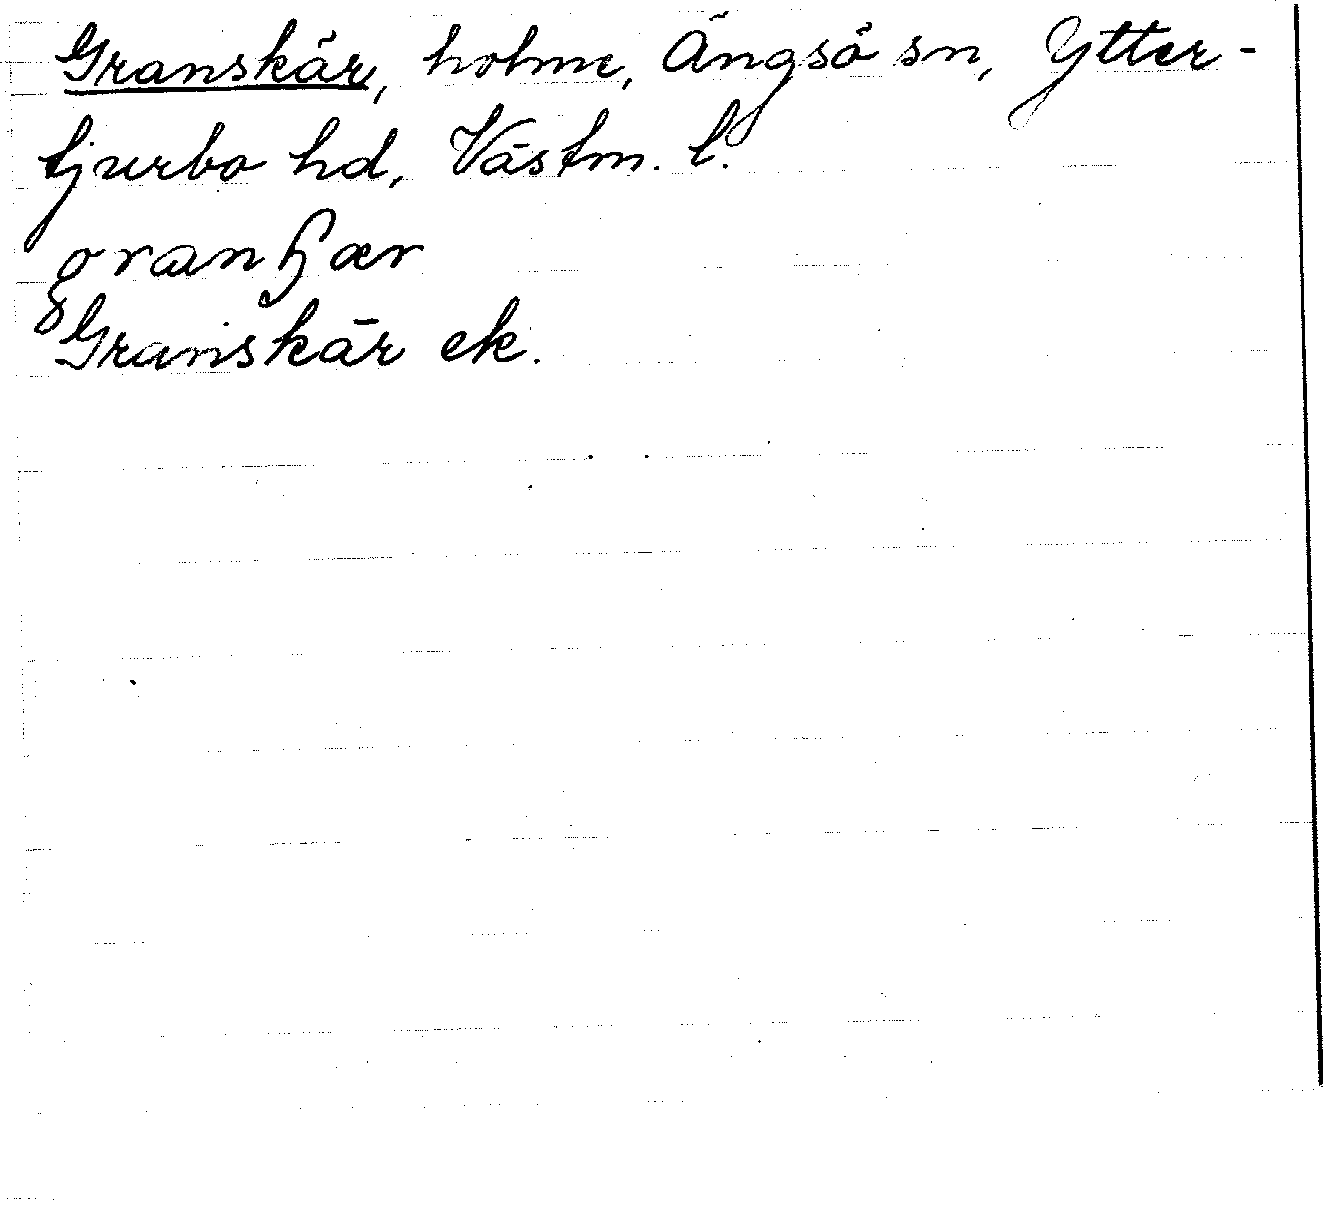 Granskär, holme, Ängsö sn, Ytter-
tjurbo hd, Västm. l.
granɧær
Granskär ek.